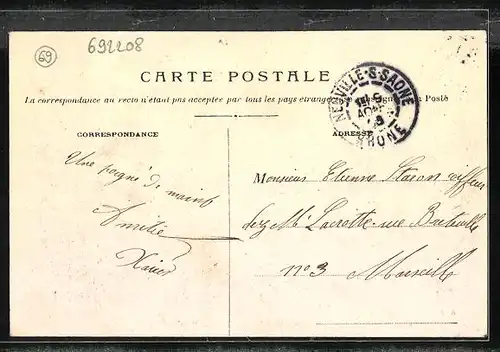 69
692208
CARTE POSTALE
La correspondance au recto n'étant pas acceptée par tous les pays étrangers
CORRESPONDANCE
ADRESSE
NEUVILLE-S-SAONE
RHONE
Une poignée de mains
Amitié
Xavier
Monsieur Etienne
chez Mr Lacrotte rue
n° 3 Marseille